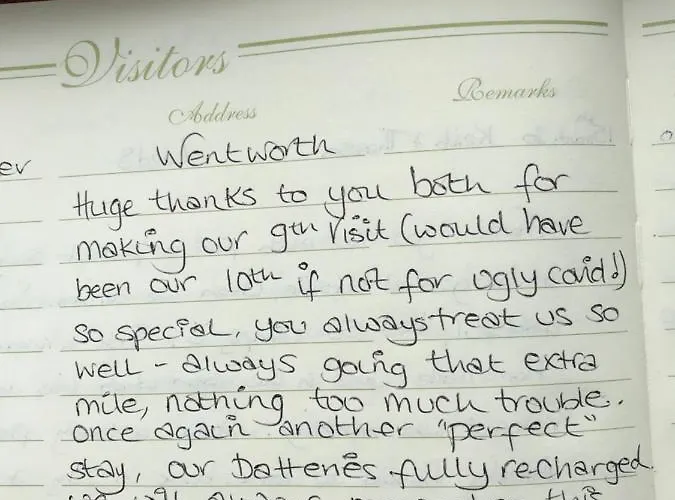 Visitors
Address
Remarks
er
Wentworth
Huge thanks to you both for
making our 9th visit (would have
been our 10th if not for ugly covid!)
so special, you always treat us so
well - always going that extra
mile, nothing too much trouble.
once again another "perfect"
stay, our batteries fully recharged.